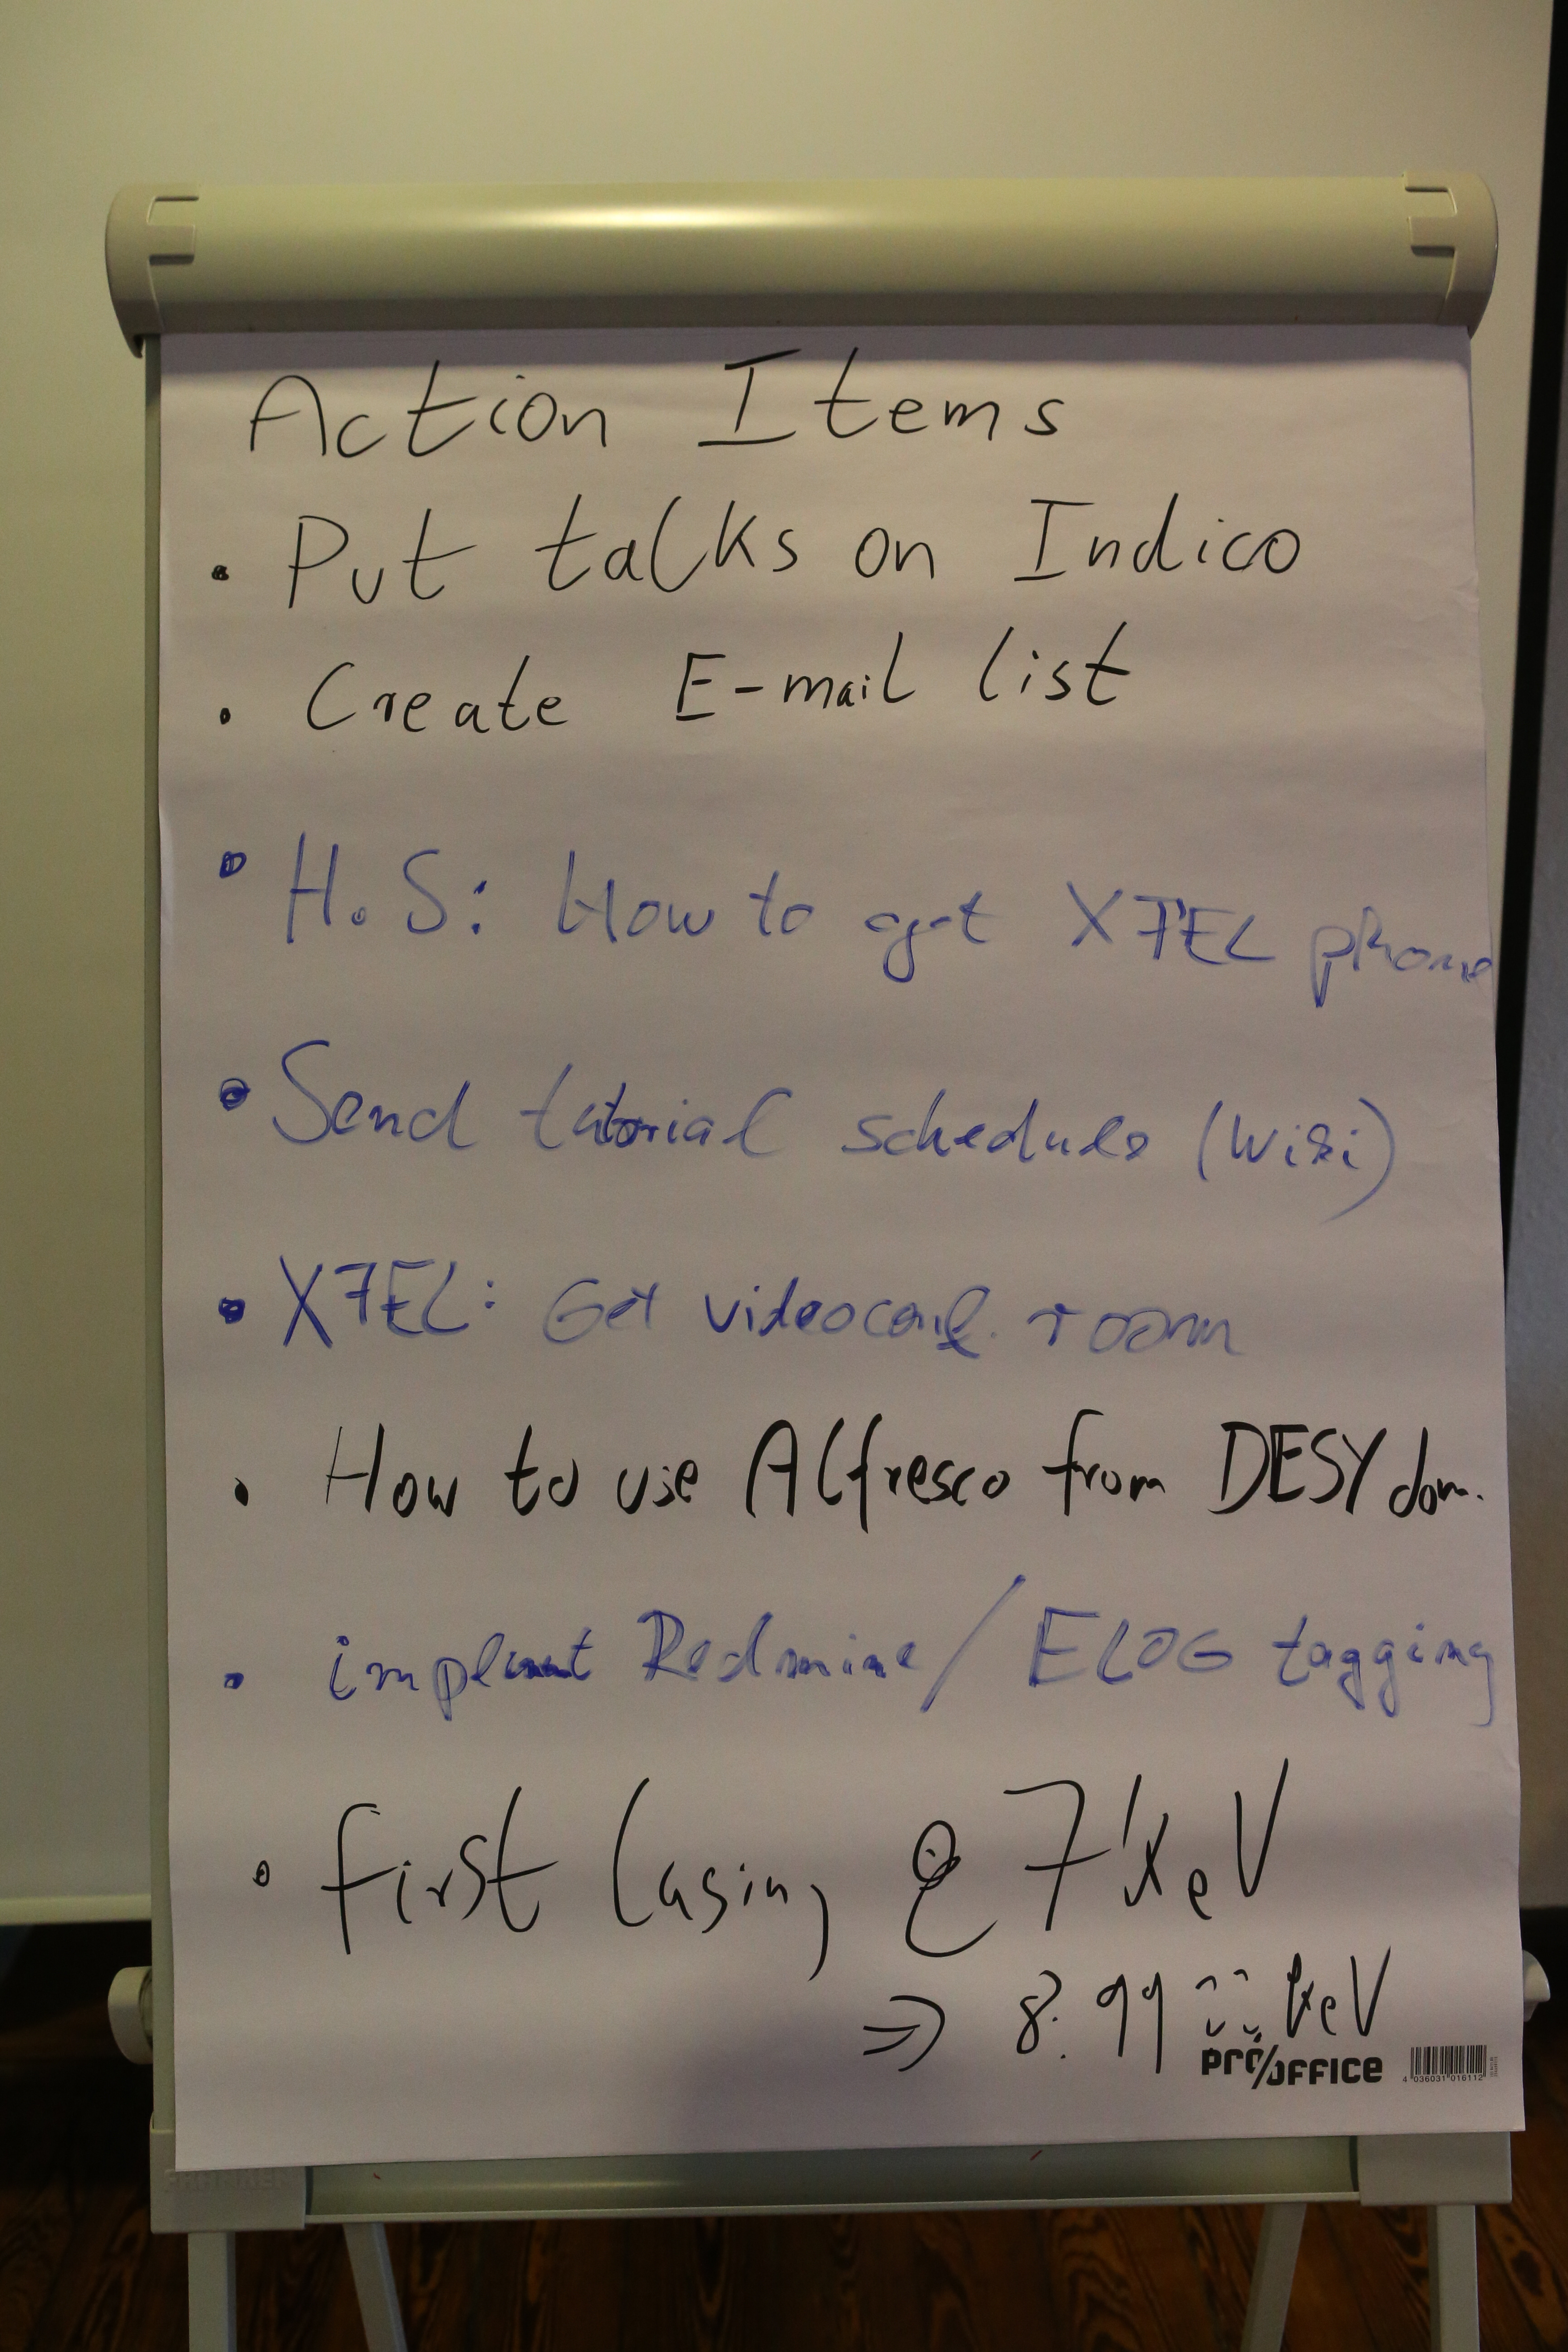 Action Items
• Put talks on Indico
• Create E-mail list
• H.S: How to get XFEL phone
• Send tutorial schedule (Wiki)
• XFEL: Get videoconf. room
• How to use Alfresco from DESY dom.
• implement Redmine/ELOG tagging
• First lasing @ 7 keV
⇒ 8.99 keV
pro/OFFICE
4 036031 016112